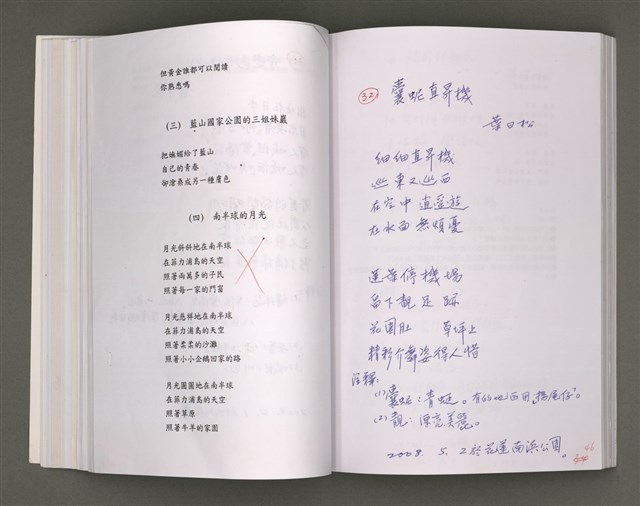 但黃金誰都可以閱讀
你熟悉嗎
(三) 藍山國家公園的三姐妹巖
把嫵媚給了藍山
自己的青春
卻滄桑成另一種膚色
(四) 南半球的月光
月光斜斜地在南半球
在菲力浦島的天空
照著兩萬多的子民
照著每一家的門窗
月光慈祥地在南半球
在菲力浦島的天空
照著柔柔的沙灘
照著小小企鵝回家的路
月光圓圓地在南半球
在菲力浦島的天空
照著草原
照著牛羊的家園
32. 囊蜺直昇機
葉日松
細細直昇機
巡東又巡西
在空中逍遥遊
在水面無煩憂
蓮葉停機場
留下靚足跡
花園肚 草坪上
精彩介舞姿得人惜
註釋:
(1)囊蜺:青蜓。
(2)靚:漂亮美麗。
2008. 5. 2 於花蓮南浜公園